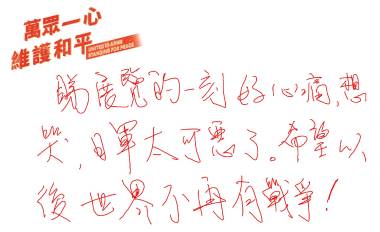 萬眾一心
維護和平
UNITED AS ONE
STANDING FOR PEACE
睇展覽的一刻好心痛,想
哭,日軍太可惡了。希望以
後世界不再有戰爭!